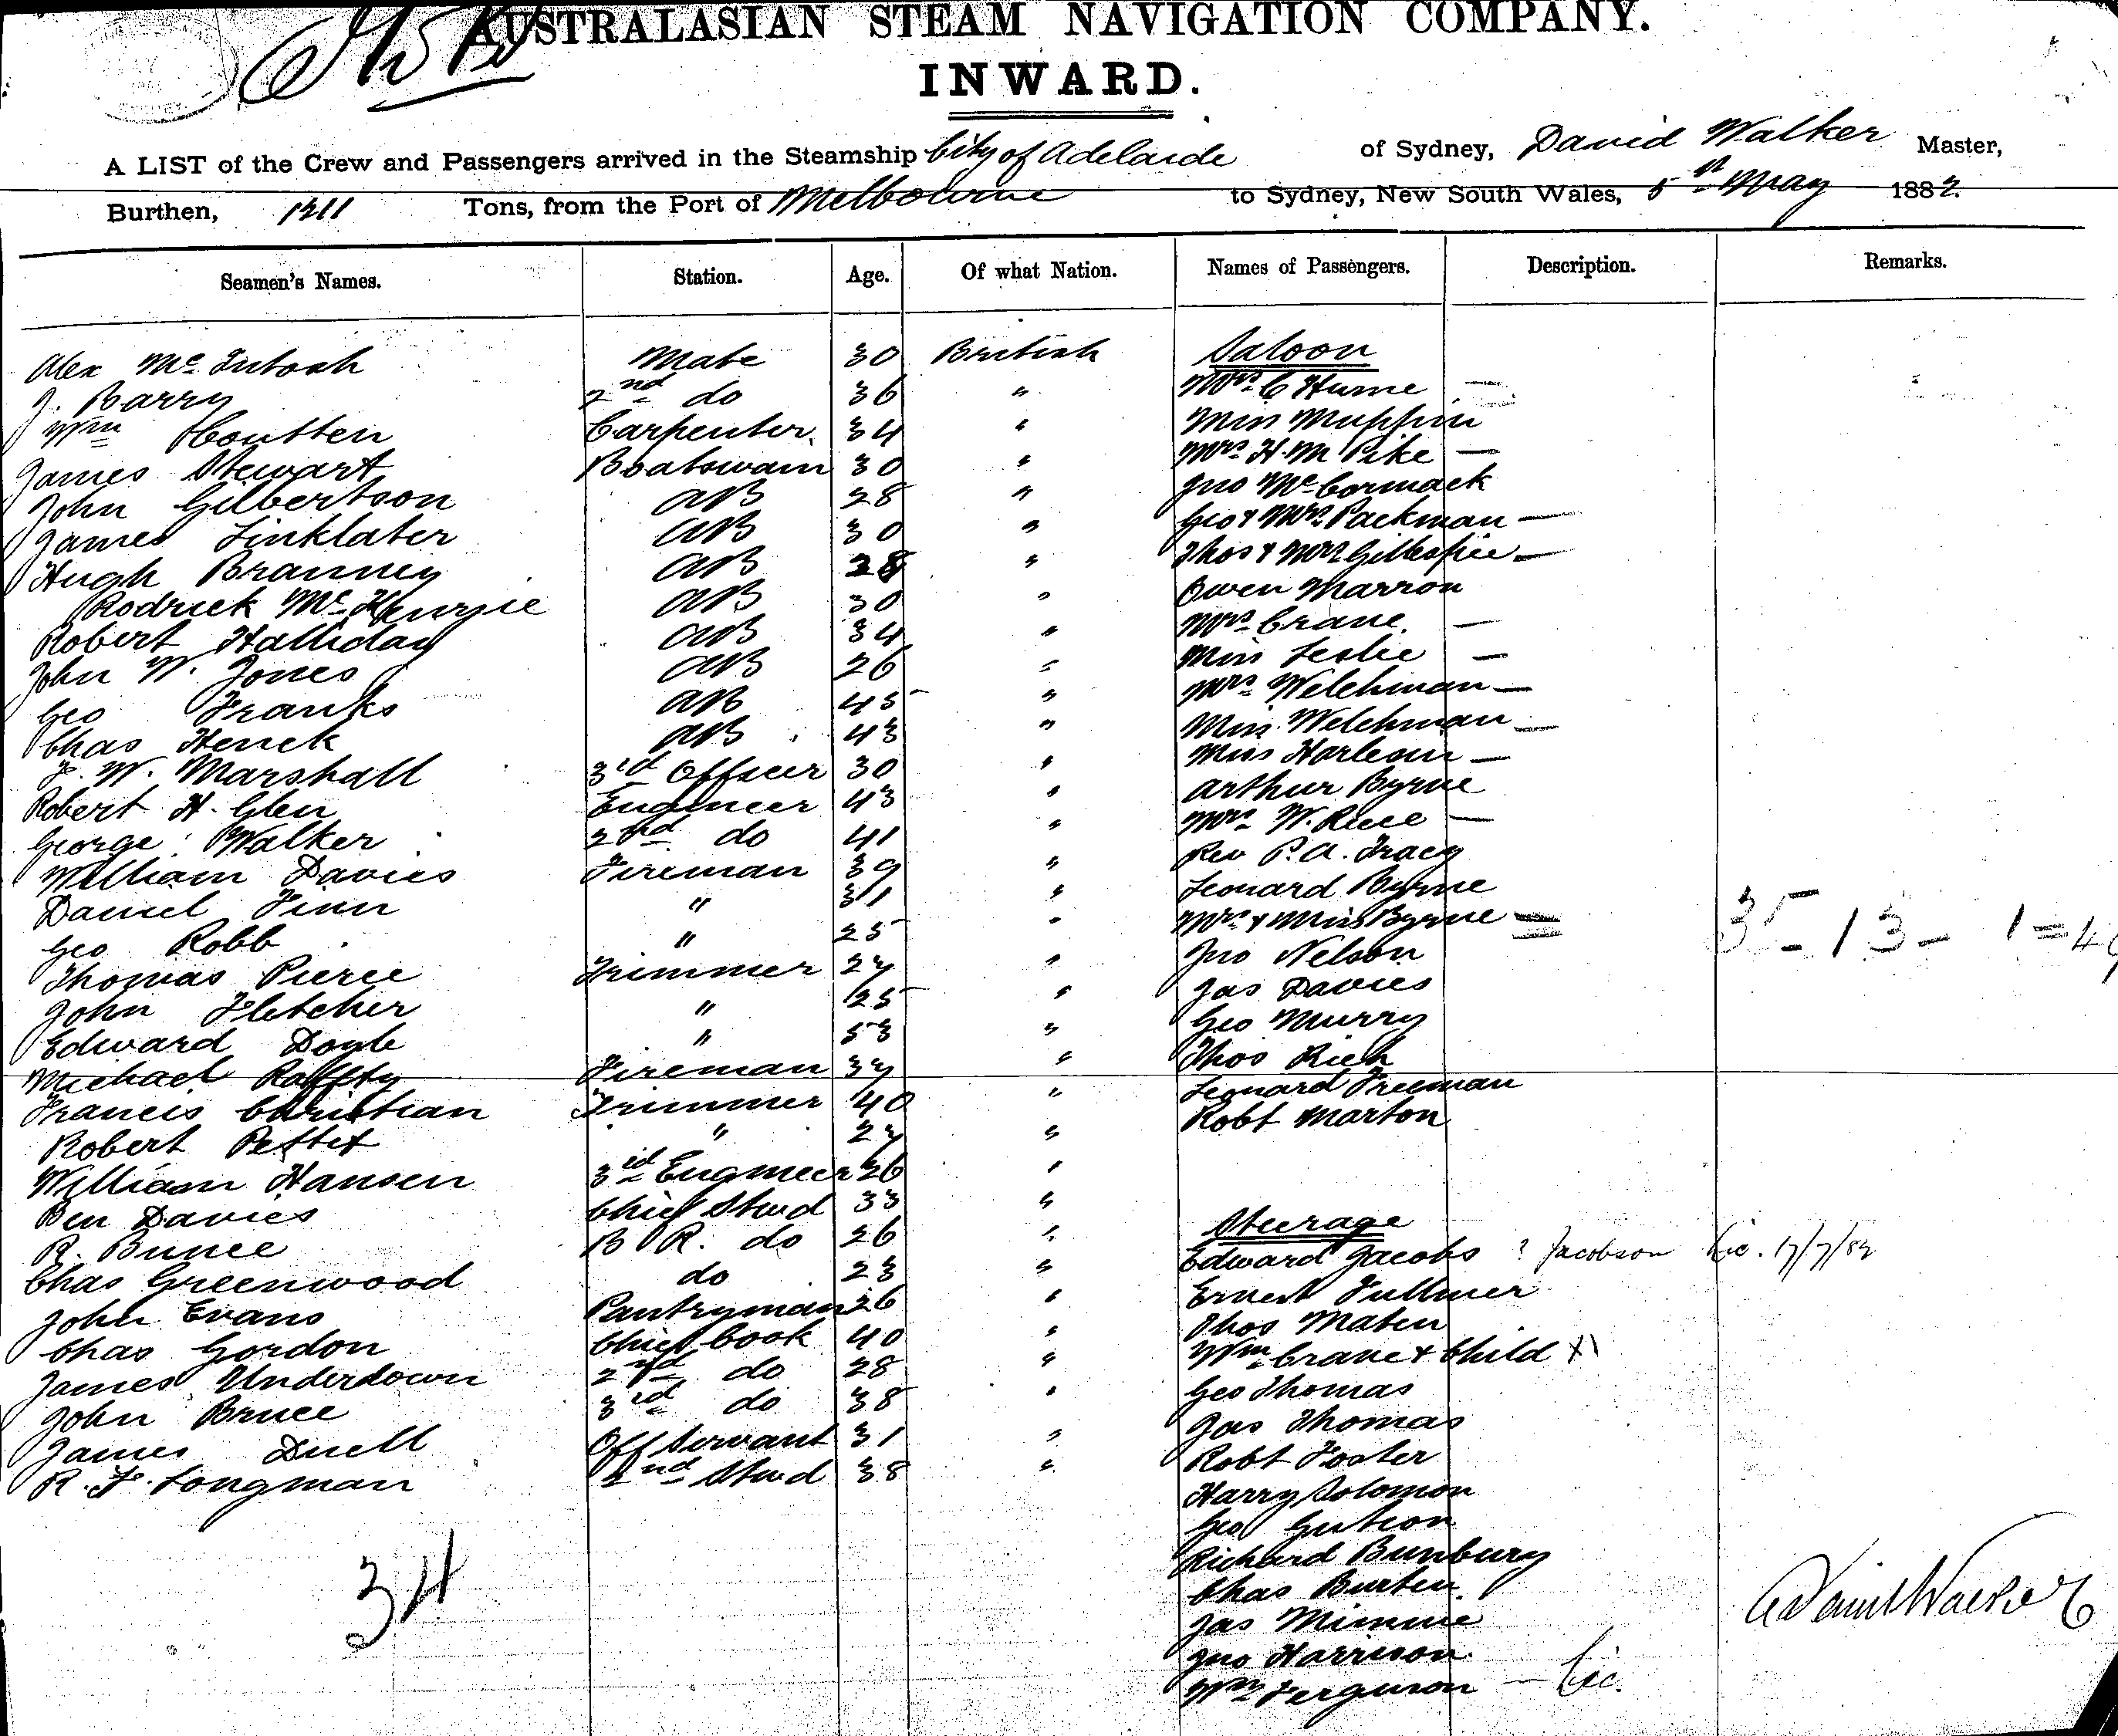 AUSTRALASIAN STEAM NAVIGATION COMPANY.
INWARD.
A LIST of the Crew and Passengers arrived in the Steamship City of Adelaide of Sydney, David Walker Master,
Burthen, 1211 Tons, from the Port of Melbourne to Sydney, New South Wales, 5th May 1882
Seamen's Names. Station. Age. Of what Nation. Names of Passengers. Description. Remarks.
Saloon
Alex McIntosh Mate 30 British
Mrs C Hume —
J. Barry 2nd do 36 "
Miss Muffin
Wm Coutten Carpenter 34 "
Mrs H. M Pike —
James Stewart Boatswain 30 "
Jno McCormack
John Gilbertson AB 28 "
Geo & Mrs Packman —
James Linklater AB 30 "
Thos & Mrs Gillespie —
Hugh Branney AB 28 "
Owen Marron
Rodrick McKenzie AB 30 "
Mrs Crane. —
Robert Halliday AB 34 "
Miss Leslie —
John W. Jones AB 26 "
Mrs Welchman —
Geo Franks AB 45 "
Miss Welchman —
Chas Henck AB 43 "
Miss Harleam —
F. W. Marshall 3rd Officer 30 "
Arthur Byrne
Robert H. Glen Engineer 43 "
Mrs W. Rice —
George Walker 2nd do 41 "
Rev P. A. Tracy
William Davies Fireman 39 "
Leonard Byrne
Daniel Finn " 31 "
Mrs & Miss Byrne =
35 - 13 - 1 = 49
Geo Robb " 25 "
Jno Nelson
Thomas Pierce Trimmer 27 "
Jas Davies
John Fletcher " 25 "
Geo Murry
Edward Doyle " 53 "
Thos Rich
Michael Raffty Fireman 37 "
Leonard Freeman
Francis Christian Trimmer 40 "
Robt Marton
Robert Pettet " 27 "
William Hansen 3rd Engineer 26 "
Ben Davies Chief Stwd 33 "
Steerage
R. Bunce B R. do 26 "
Edward Jacobs ? Jacobson Lic. 17/7/82
Chas Greenwood do 23 "
Ernest Fullmer
John Evans Pantryman 26 "
Thos Maten
Chas Gordon Chief Cook 40 "
Wm Crane & Child X1
James Underdown 2nd do 28 "
Geo Thomas
John Bruce 3rd do 38 "
Jas Thomas
James Duell Off Servant 31 "
Robt Foster
R. F. Longman 2nd Stwd 38 "
Harry Solomon
Geo
Richard Bunbury
34
Chas Burten
Jas Mimmie
David Walker
Jno Harrison
Wm Ferguson —